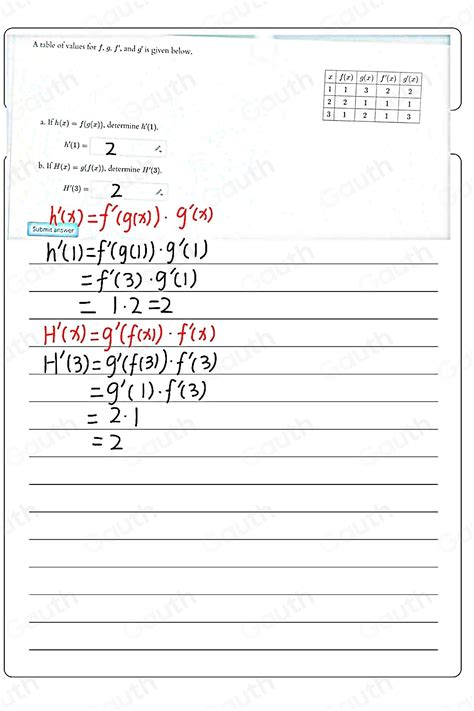 A table of values for f, g, f', and g' is given below.
x f(x) g(x) f'(x) g'(x)
1 1 3 2 2
2 2 1 1 1
3 1 2 1 3
a. If h(x) = f(g(x)), determine h'(1).
h'(1) = 2
b. If H(x) = g(f(x)), determine H'(3).
H'(3) = 2
h'(x)=f'(g(x))·g'(x)
Submit answer
h'(1)=f'(g(1))·g'(1)
=f'(3)·g'(1)
= 1·2=2
H'(x)=g'(f(x))·f'(x)
H'(3)=g'(f(3))·f'(3)
=g'(1)·f'(3)
= 2·1
=2
Gauth